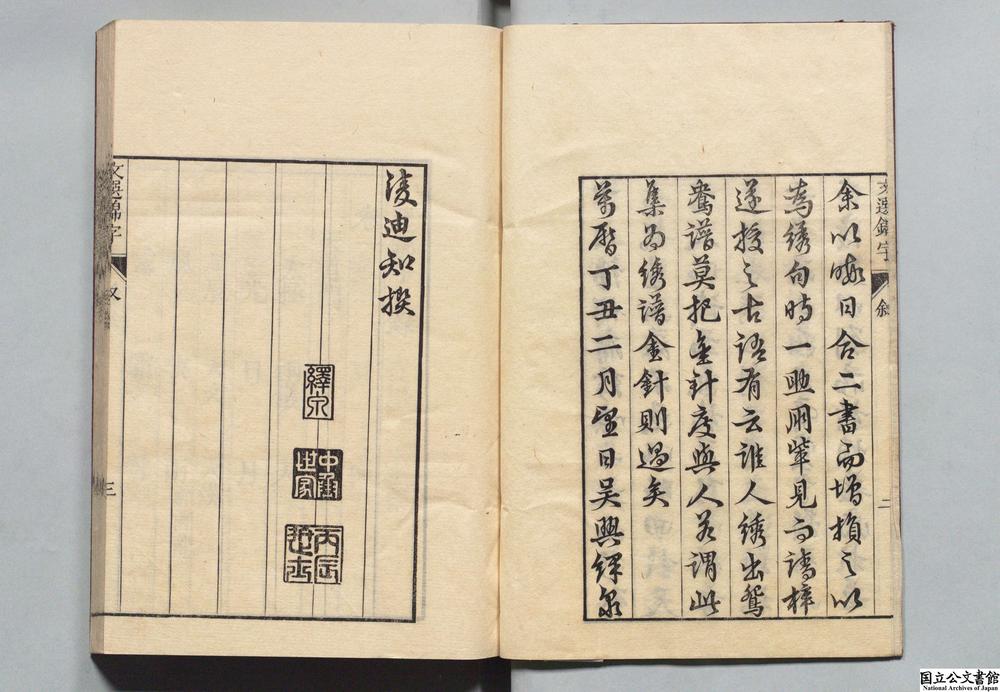 文選錦字
敘
二
余以暇日合二書而增損之以
為綉句時一助用犖見而請梓
遂授之古語有云誰人綉出鴛
鴦譜莫把金針度與人若謂此
集為綉譜金針則過矣
萬曆丁丑二月望日吳興繹泉
凌迪知撰
繹泉
世家
丙辰
進士
文選錦字
敘
三
国立公文書館
National Archives of Japan